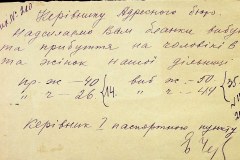 Керівнику Адресного бюро.
Надсилаємо Вам бланки вибут
та прибуття на чоловіків
та жінок нашої дільниці
пр. ж – 40 виб ж – 50
" ч – 26 14. " ч – 44 35
Керівник I паспортного пункту